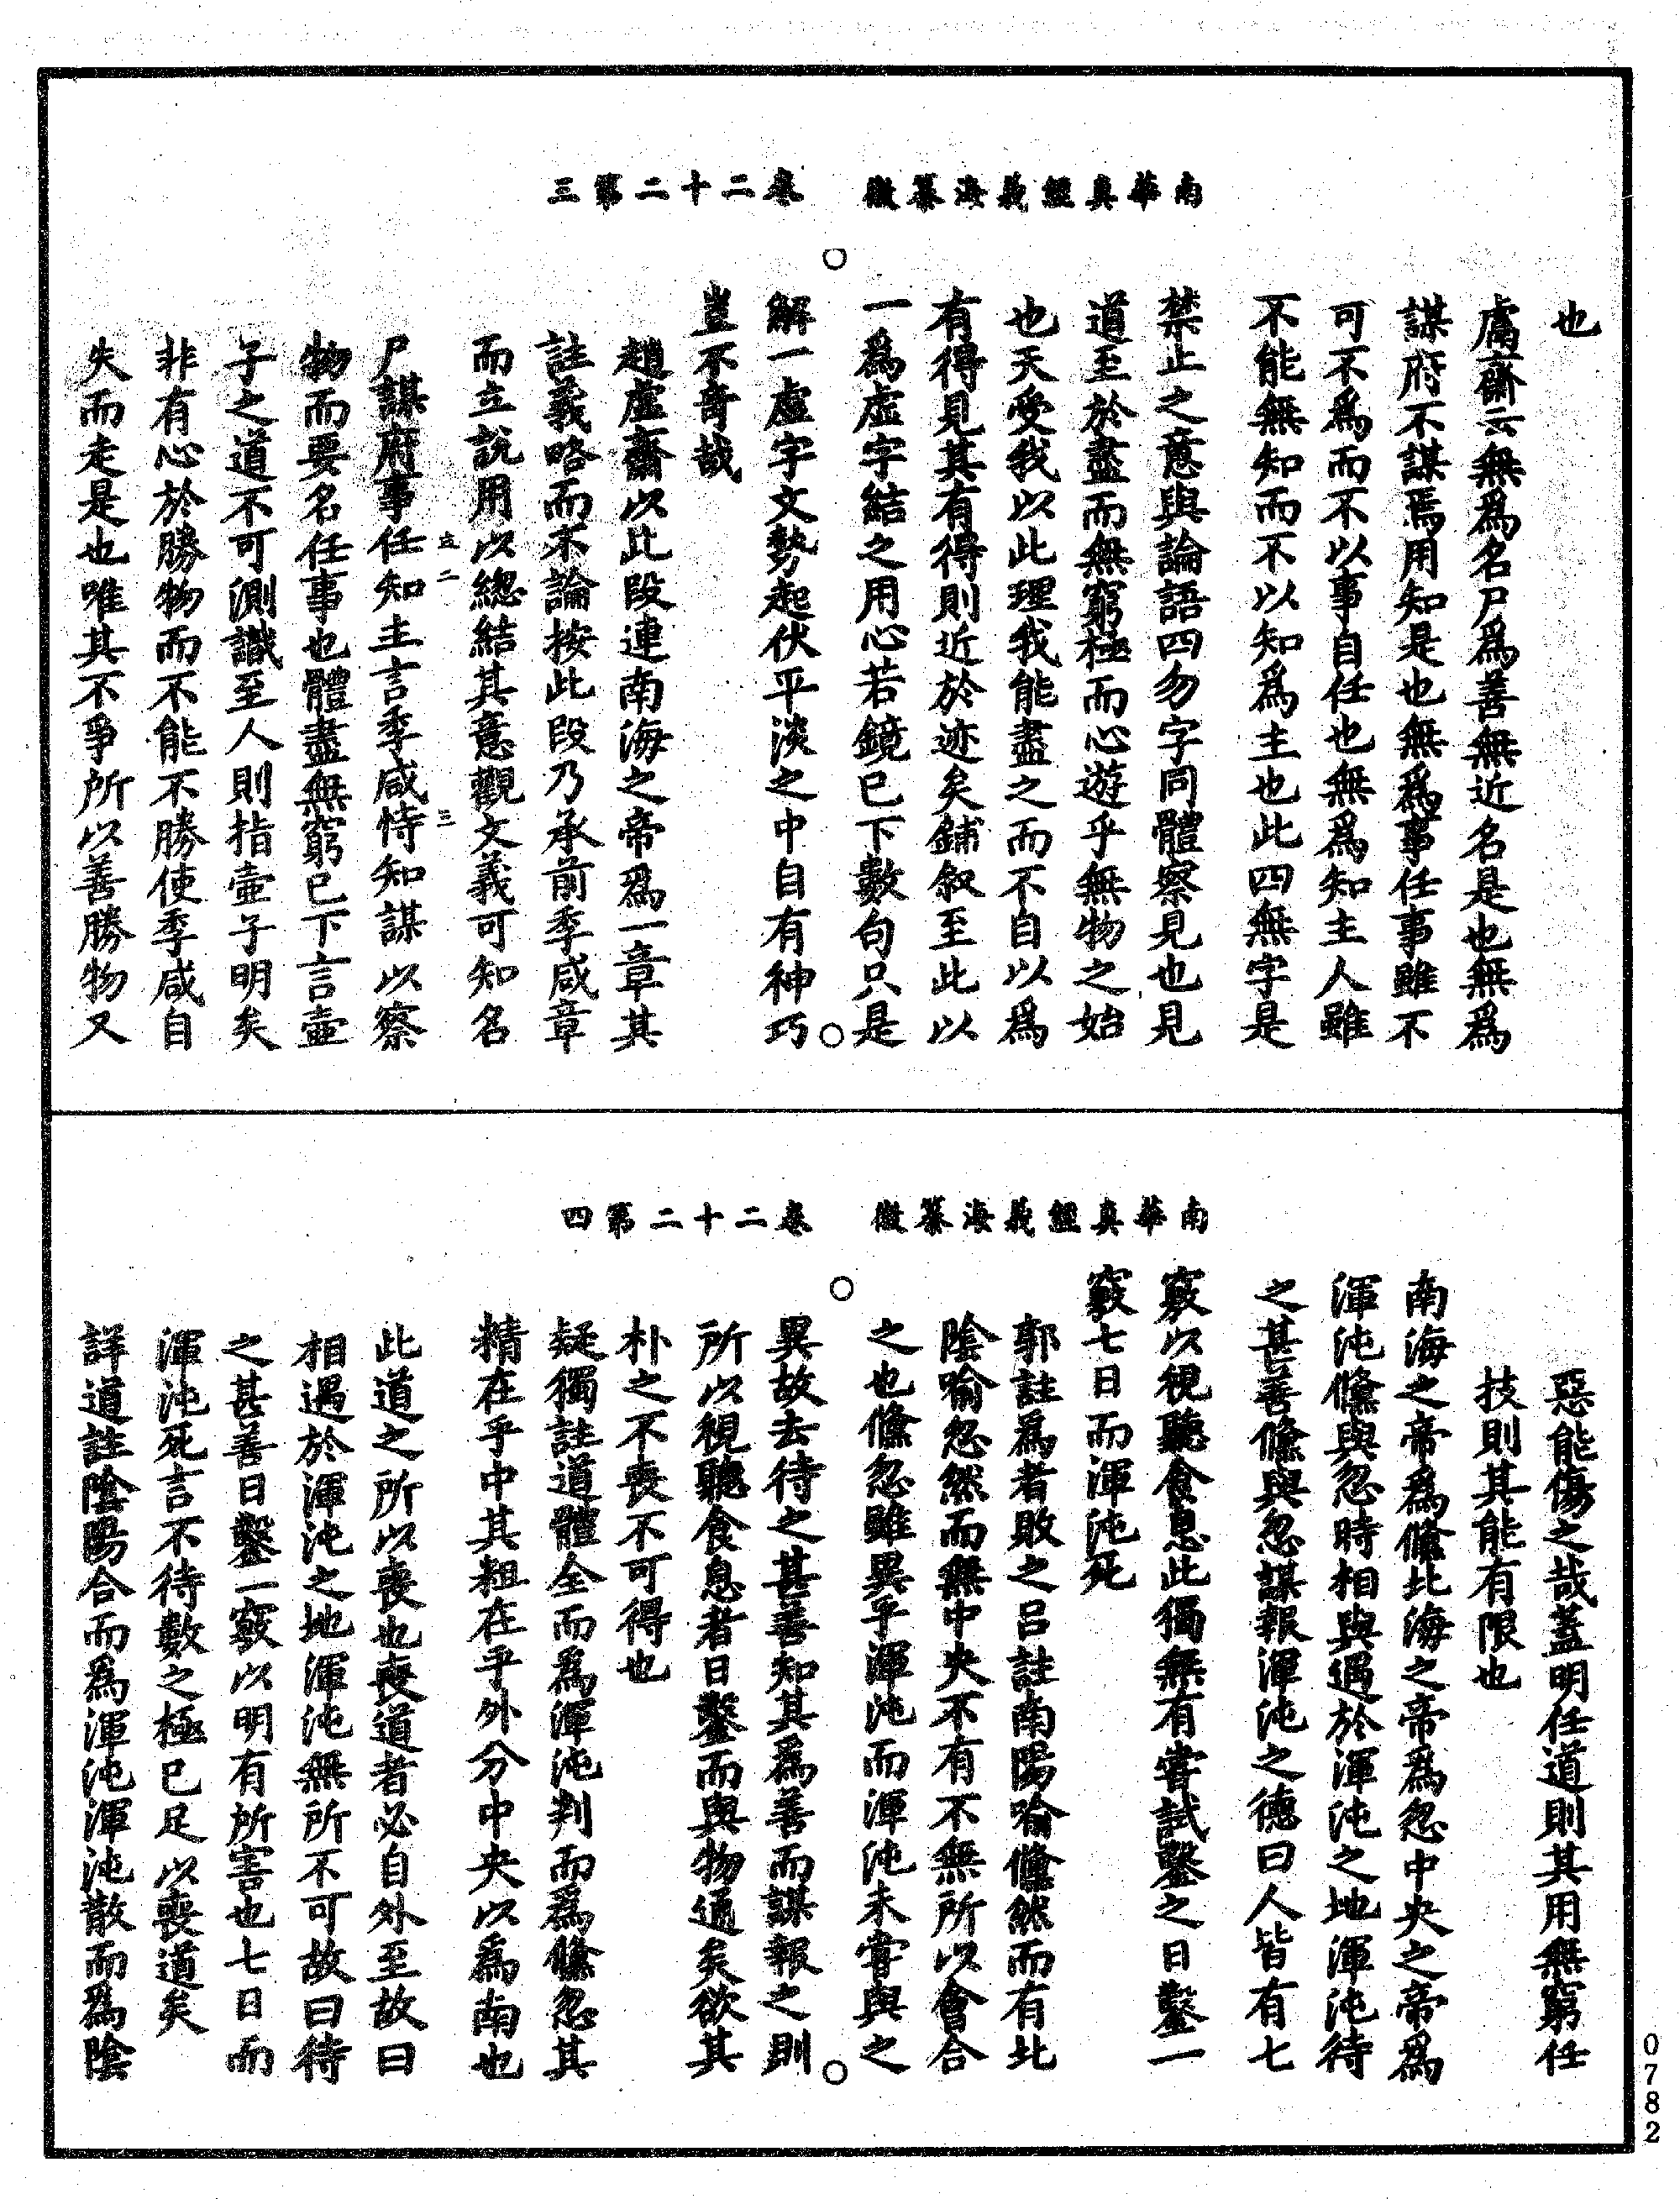 南華真經義海纂微　卷二十二第三
也
鬳齋云無爲名尸爲善無近名是也無爲
謀府不謀焉用知是也無爲事任事雖不
可不爲而不以事自任也無爲知主人雖
不能無知而不以知爲主也此四無字是
禁止之意與論語四勿字同體察見也見
道至於盡而無窮極而心遊乎無物之始
也天受我以此理我能盡之而不自以爲
有得見其有得則近於迹矣鋪叙至此以
一爲虛字結之用心若鏡已下數句只是
解一虛字文勢起伏平淡之中自有神巧
豈不奇哉
趙虛齋以此段連南海之帝爲一章其
註義略而不論按此段乃承前季咸章
而立說用以總結其意觀文義可知名
尸謀府事任知主言季咸恃知謀以察
物而要名任事也體盡無窮已下言壺
子之道不可測識至人則指壺子明矣
非有心於勝物而不能不勝使季咸自
失而走是也唯其不爭所以善勝物又
南華真經義海纂微　卷二十二第四
惡能傷之哉蓋明任道則其用無窮任
技則其能有限也
南海之帝爲儵北海之帝爲忽中央之帝爲
渾沌儵與忽時相與遇於渾沌之地渾沌待
之甚善儵與忽謀報渾沌之德曰人皆有七
竅以視聽食息此獨無有嘗試鑿之日鑿一
竅七日而渾沌死
郭註爲者敗之呂註南陽喻儵然而有北
陰喻忽然而無中央不有不無所以會合
之也儵忽雖異乎渾沌而渾沌未嘗與之
異故去待之甚善知其爲善而謀報之則
所以視聽食息者日鑿而與物通矣欲其
朴之不喪不可得也
疑獨註道體全而爲渾沌判而爲儵忽其
精在乎中其粗在乎外分中央以爲南也
此道之所以喪也喪道者必自外至故曰
相遇於渾沌之地渾沌無所不可故曰待
之甚善日鑿一竅以明有所害也七日而
渾沌死言不待數之極已足以喪道矣
詳道註陰陽合而爲渾沌渾沌散而爲陰
0782